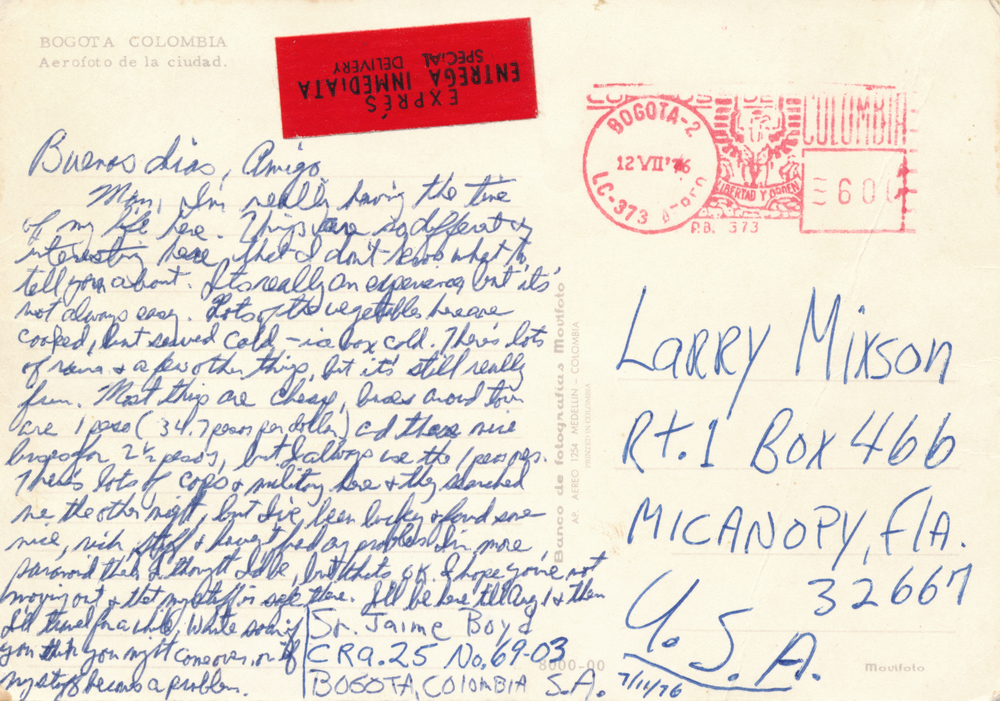 BOGOTA COLOMBIA
Aerofoto de la ciudad.
EXPRÉS
ENTREGA INMEDIATA
SPECIAL
DELIVERY
COLOMBIA
BOGOTA-2
12 VII '76
LC-373
LIBERTAD Y ORDEN
600
P.B. 373
Buenos dias, Amigo
Man, I'm really having the time
of my life here. Things are so different &
interesting here, that I don't know what to
tell you about. Its really an experience, but it's
not always easy. Lots of the vegetables here are
cooked, but served cold – ice box cold. There's lots
of rain & a few other things, but it's still really
fun. Most things are cheap, buses around town
are 1 peso (34.7 pesos per dollar) and there nice
buses for 2½ pesos, but I always use the 1 peso ones.
There's lots of cops & military here & they searched
me the other night, but I've been lucky & found some
nice, rich stuff & haven't had any problem. I'm more
paranoid than I thought I'd be, but thats OK. I hope you're not
moving out & that my stuff is safe there. I'll be here till Aug 1 & then
I'll travel for a while. Write soon if
you think you might come over, or if
my stuff becomes a problem.
Sr. Jaime Boyd
CRa. 25 No. 69-03
BOGOTA, COLOMBIA S.A.
7/11/76
Banco de fotografias Movifoto
AP. AEREO 1254 MEDELLIN - COLOMBIA
PRINTED IN COLOMBIA
Larry Mixson
Rt. 1 Box 466
MICANOPY, FlA.
32667
U.S.A.
8000-00
Movifoto